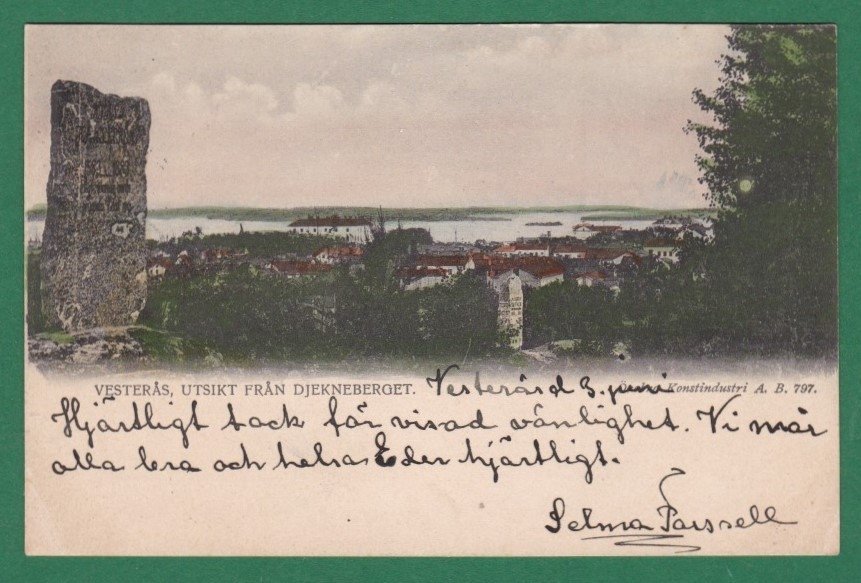 VESTERÅS, UTSIKT FRÅN DJEKNEBERGET. Vesterås d 3. juni Konstindustri A. B. 797.
Hjärtligt tack för visad vänlighet. Vi mår
alla bra och helsa Eder hjärtligt.
Selma